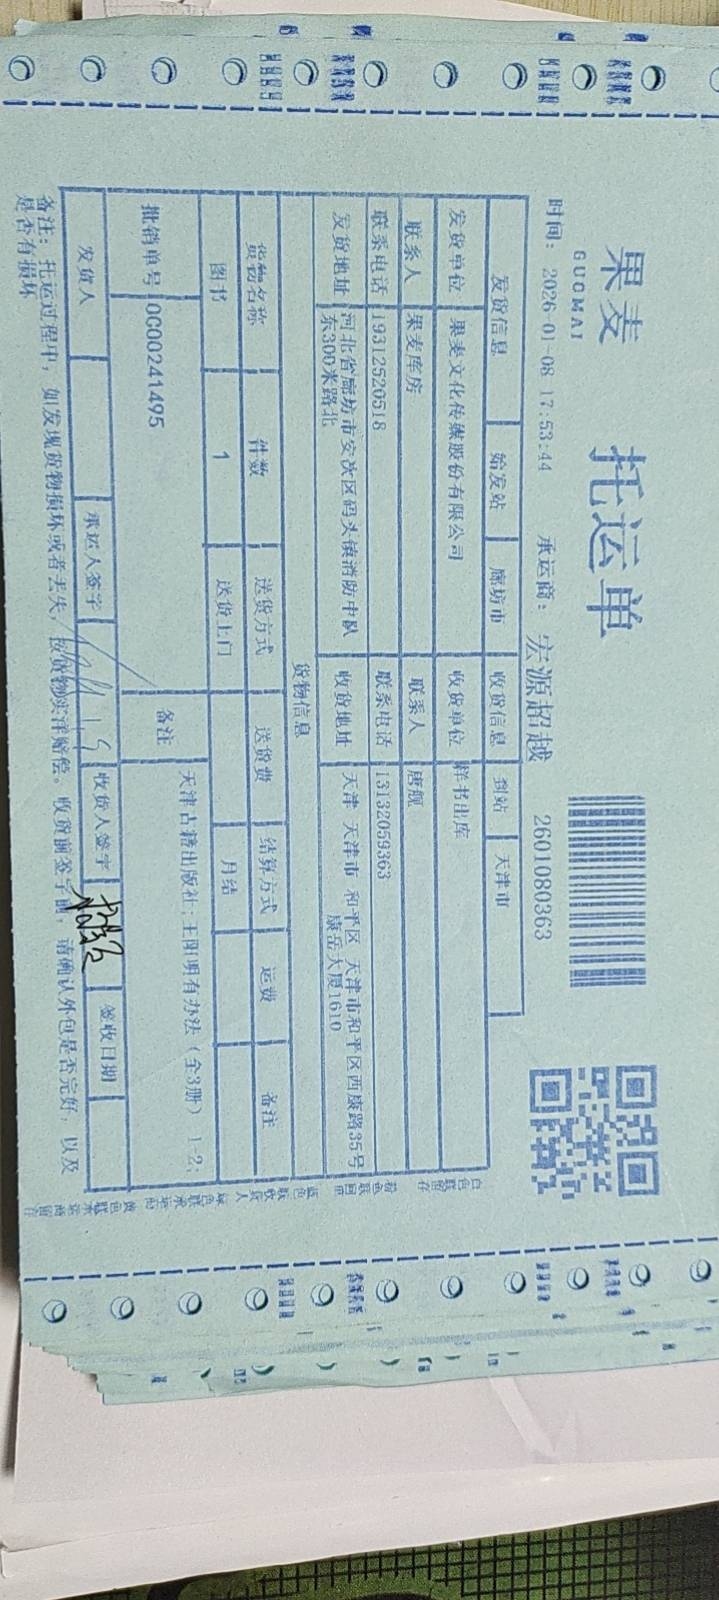 果麦
GUOMAI
托运单
时间：2026-01-08 17:53:44 承运商：宏源超越 2601080363
发货信息 始发站 廊坊市 收货信息 到站 天津市
发货单位 果麦文化传媒股份有限公司 收货单位 样书出库
联系人 果麦库房 联系人 唐舰
联系电话 19312520518 联系电话 13132059363
发货地址 河北省廊坊市安次区码头镇消防中队
东300米路北
收货地址 天津 天津市 和平区 天津市和平区西康路35号
康岳大厦1610
货物信息
货物名称 件数 送货方式 送货费 结算方式 运费 备注
图书 1 送货上门 月结
批销单号 0C00241495 备注 天津古籍出版社:王阳明有办法（全3册）1-2;
发货人 承运人签字 收货人签字 签收日期
备注：托运过程中，如发现货物损坏或者丢失，按货物实洋赔偿。收货前签字时，请确认外包是否完好，以及
是否有损坏